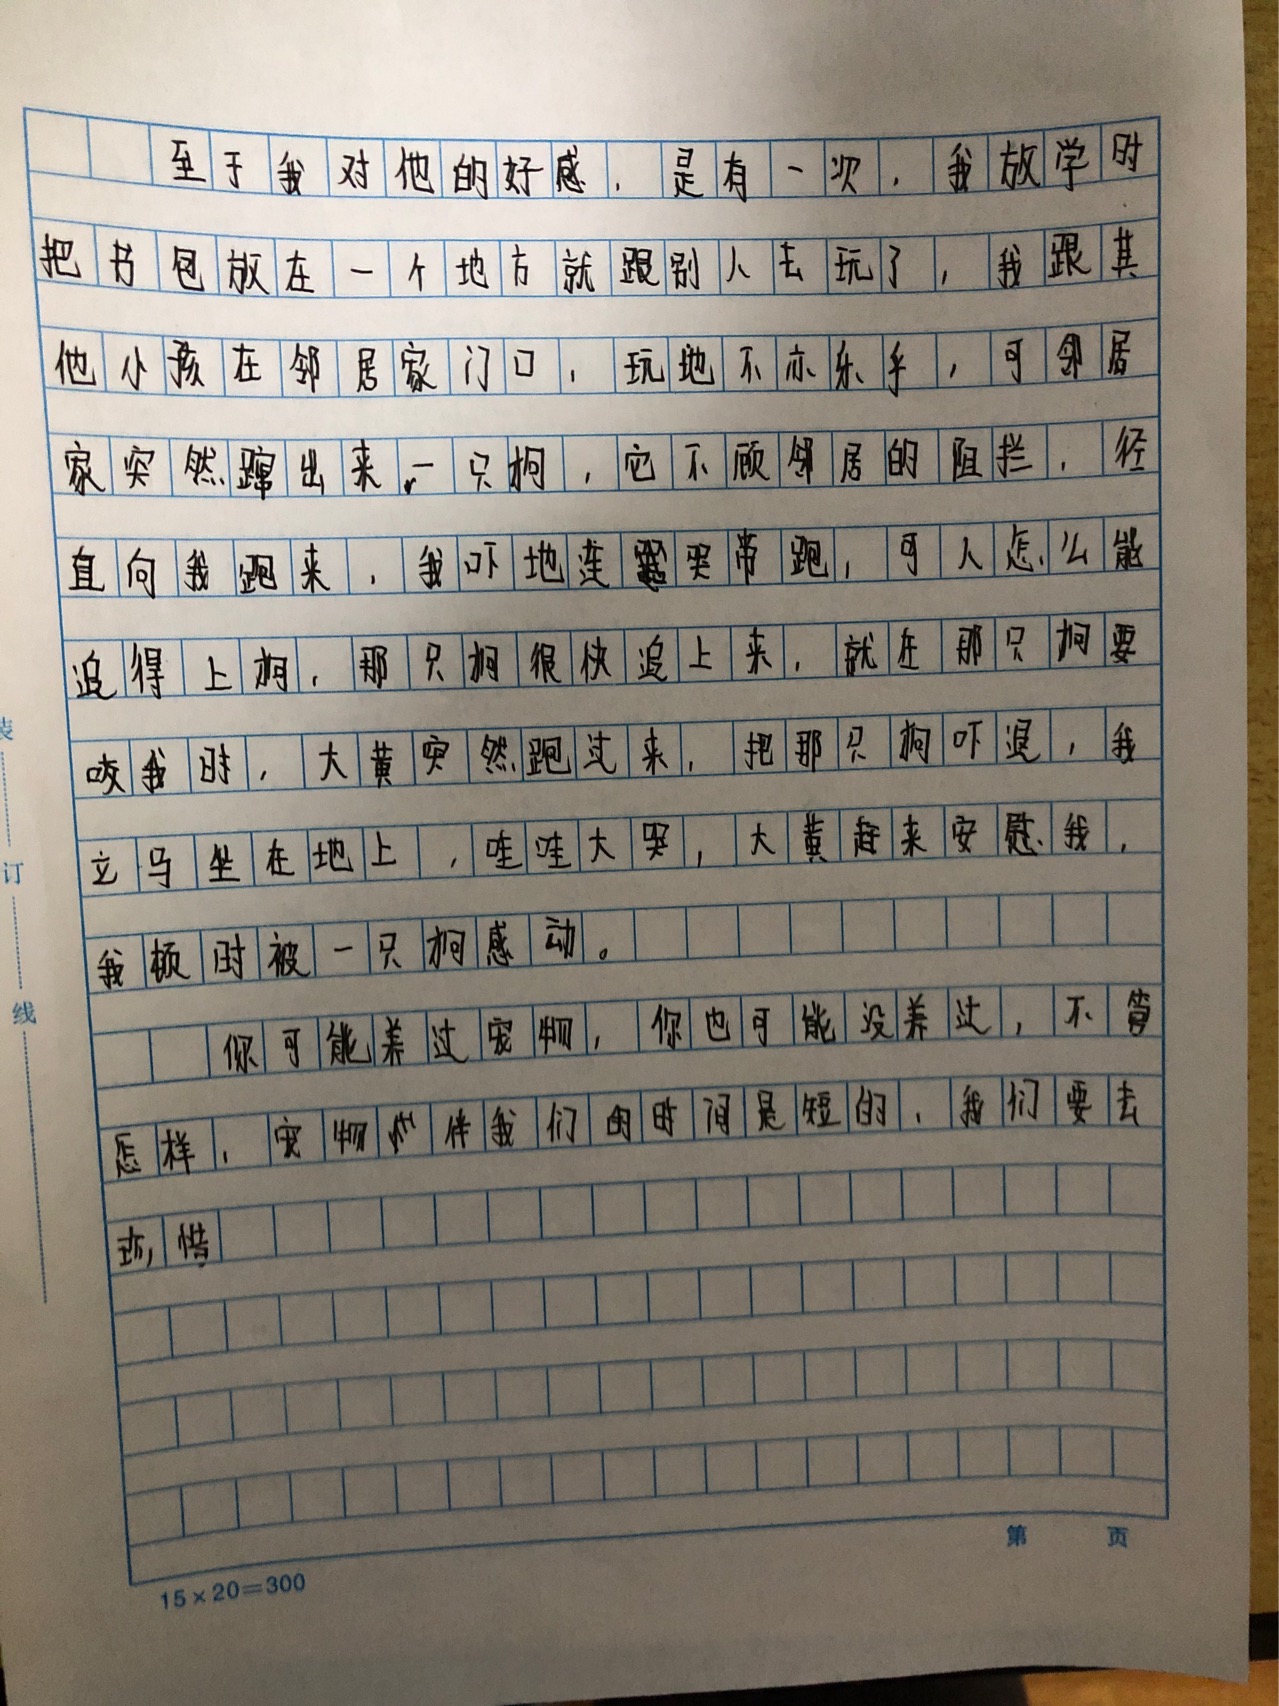 至于我对他的好感，是有一次，我放学时
把书包放在一个地方就跟别人去玩了，我跟其
他小孩在邻居家门口，玩地不亦乐乎，可邻居
家突然蹿出来一只狗，它不顾邻居的阻拦，径
直向我跑来，我吓地连哭带跑，可人怎么能
追得上狗，那只狗很快追上来，就在那只狗要
咬我时，大黄突然跑过来，把那只狗吓退，我
立马坐在地上，哇哇大哭，大黄赶来安慰我，
我顿时被一只狗感动。
你可能养过宠物，你也可能没养过，不管
怎样，宠物伴我们的时间是短的，我们要去
珍惜
装
订
线
第 页
15×20=300